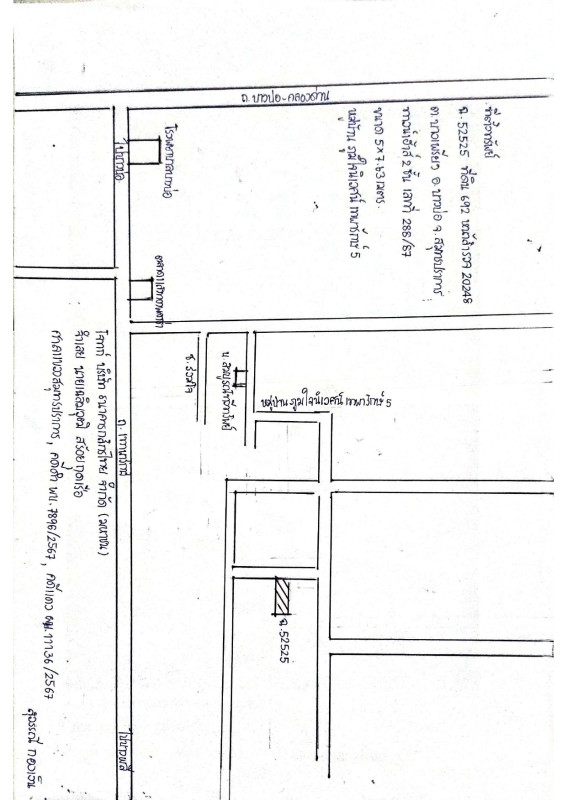 ถ.บางบ่อ-คลองด่าน
ที่ตั้งทรัพย์
ฉ.52525 ที่ดิน 692 หน้าสำรวจ 20248
ต.บางเพรียง อ.บางบ่อ จ.สมุทรปราการ
ทาวน์เฮ้าส์ 2 ชั้น เลขที่ 288/87
ขนาด 5×7.63 เมตร.
หมู่บ้าน ภูมิใจนิเวศน์ เทพารักษ์ 5
โรงพยาบาลบางบ่อ
ไปบางบ่อ
ซ.ร่วมใจ
หมู่บ้าน ภูมิใจนิเวศน์ เทพารักษ์ 5
ถ.เทพารักษ์
ฉ.52525
ไปบางพลี
โจทก์ บริษัท ธนาคารกสิกรไทย จำกัด (มหาชน)
จำเลย นายเฉลิมวุฒิ สร้อยกุดเรือ
ศาลแขวงสมุทรปราการ, คดีดำ ผบ.7896/2567, คดีแดง ผบ.11136/2567
สุวรรณี ทองเงิน